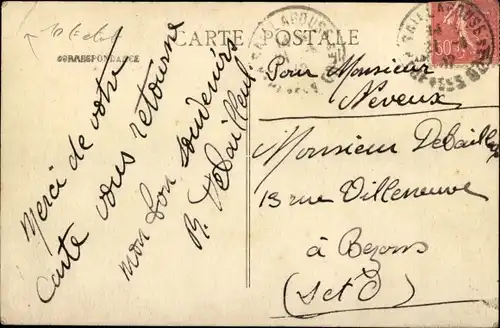 CARTE POSTALE
CORRESPONDANCE
Merci de votre
carte vous retourne
mon bon souvenirs
R. Debailleul
Pour Monsieur
Neveux
Monsieur Debailleul
13 rue Villeneuve
à Bezons
(S et O)
50